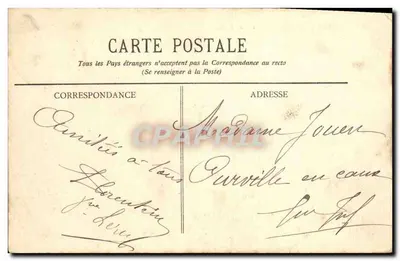 CARTE POSTALE
Tous les Pays étrangers n'acceptent pas la Correspondance au recto
(Se renseigner à la Poste)
CORRESPONDANCE
ADRESSE
Amitiés à tous
Florentine
Madame Jouen
Ourville en caux
CPAPHIL